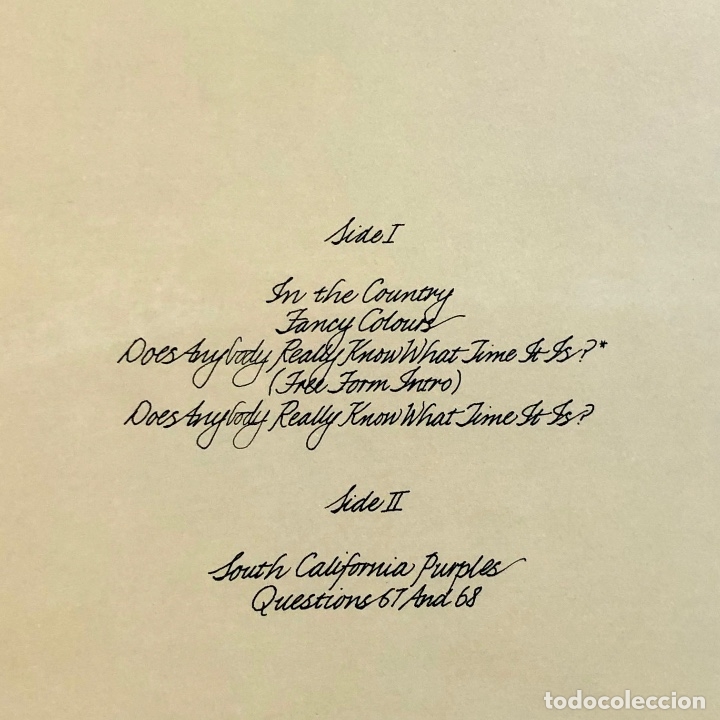 Side I
In the Country
Fancy Colours
Does Anybody Really Know What Time It Is?*
(Free Form Intro)
Does Anybody Really Know What Time It Is?
Side II
South California Purples
Questions 67 And 68
todocoleccion